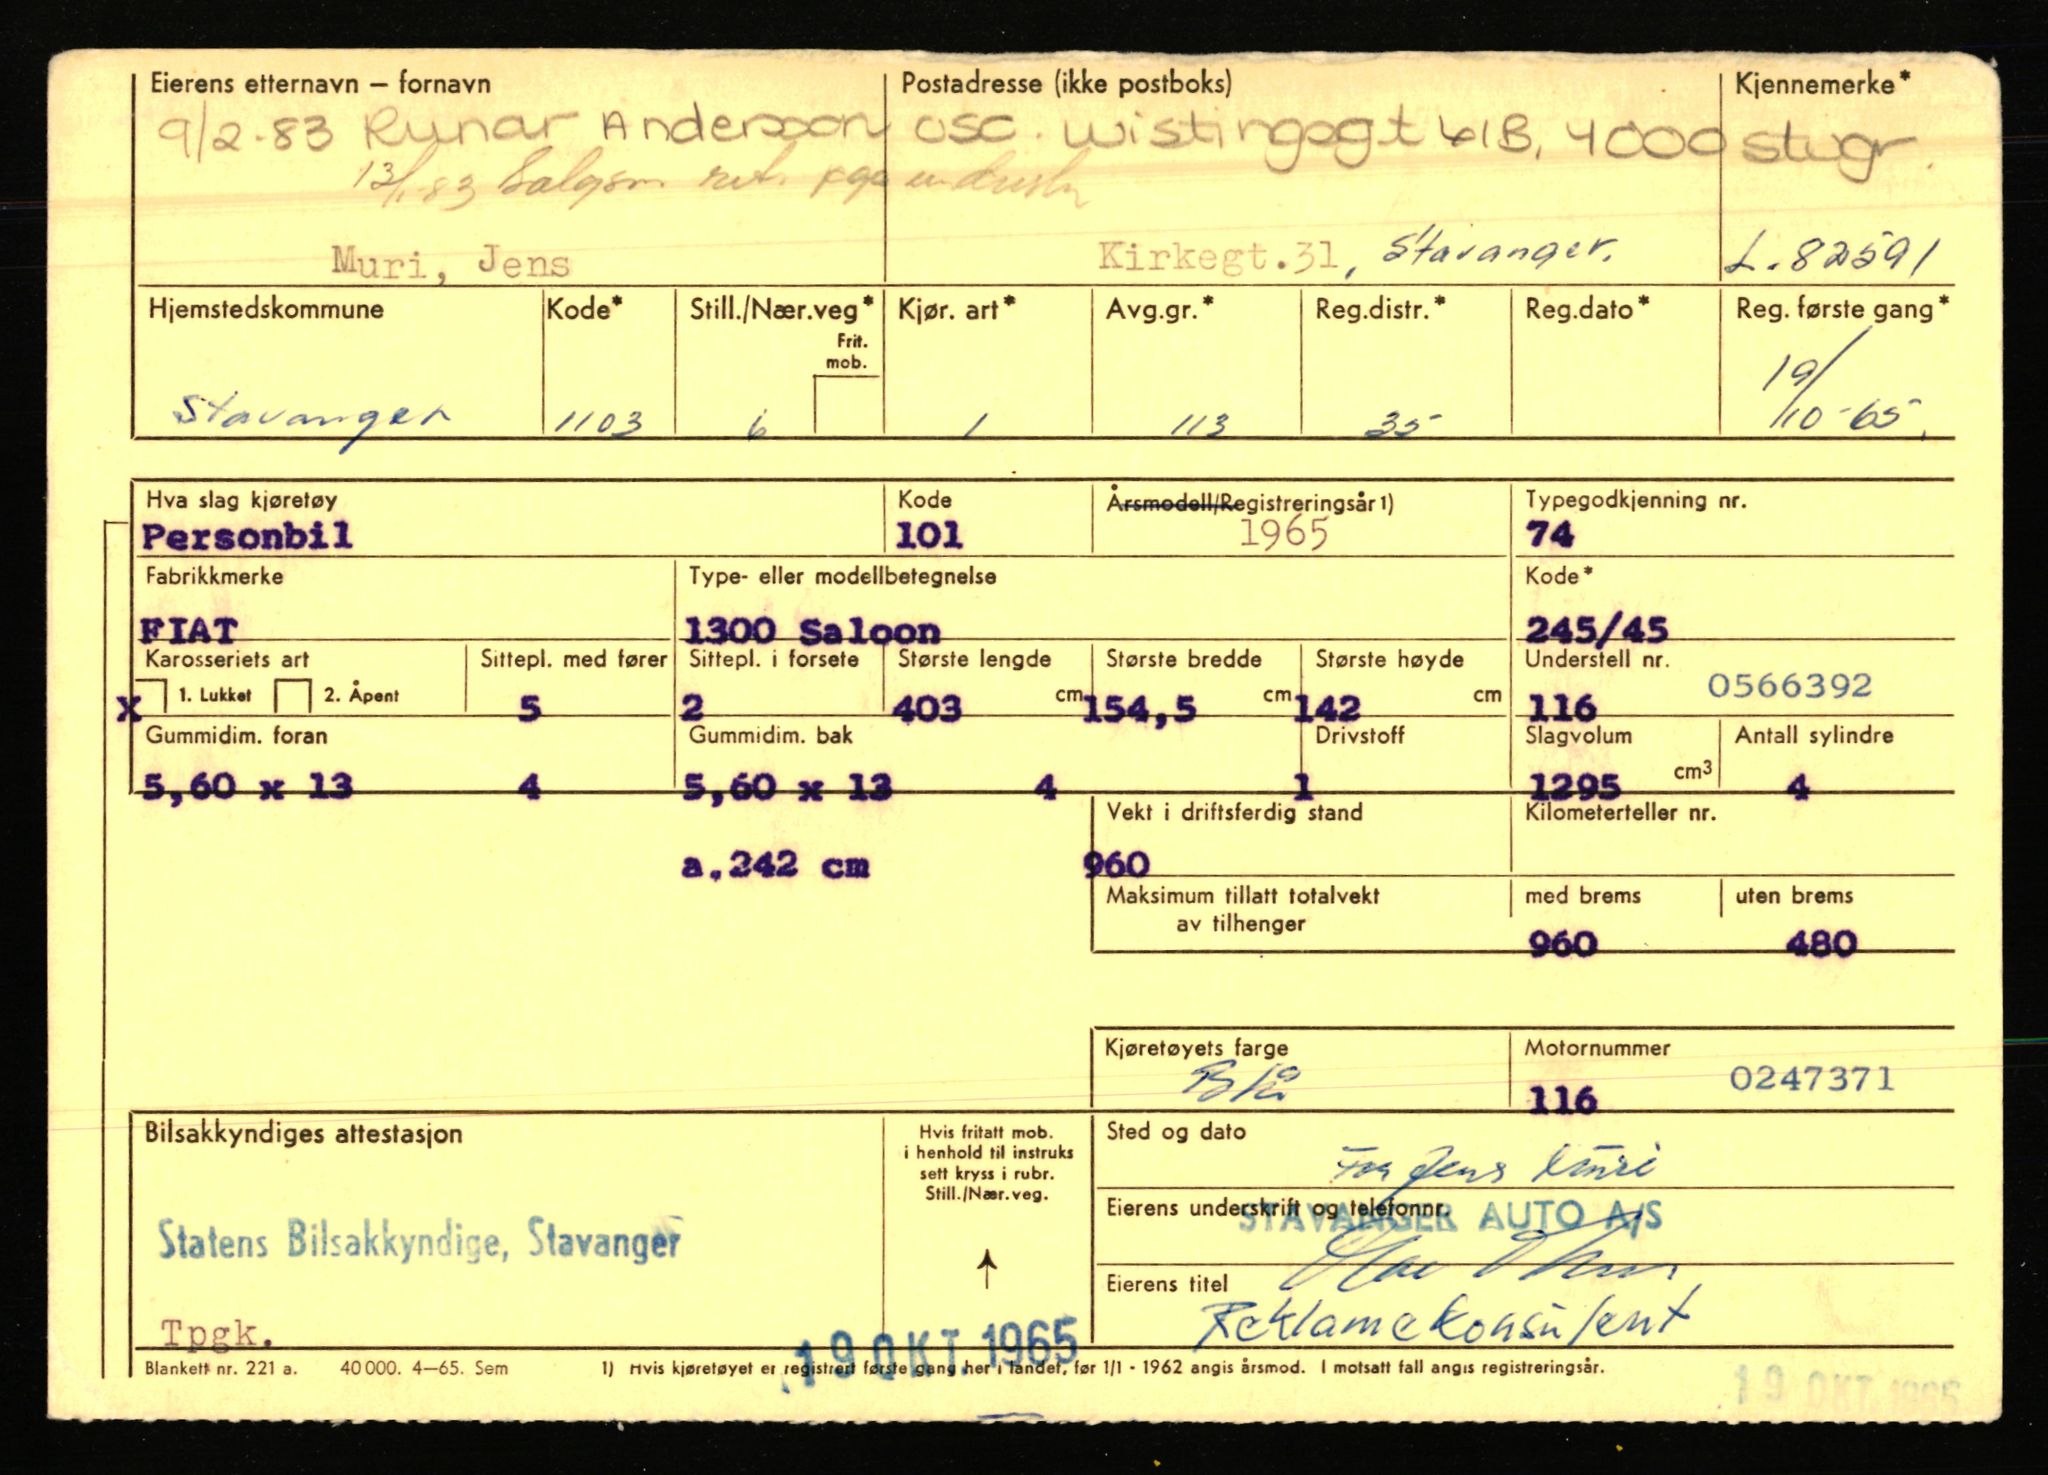 Eierens etternavn – fornavn Postadresse (ikke postboks) Kjennemerke*
9/2-83 Runar Andersson Osc. Wistingsgt 41B, 4000 Stvgr.
13/1-83 Salgsm
Muri, Jens Kirkegt.31, Stavanger. L-82591
Hjemstedskommune Kode* Still./Nær.veg* Kjør. art* Avg.gr.* Reg.distr.* Reg.dato* Reg. første gang*
Frit.
mob.
Stavanger 1103 6 1 113 35 19/10-65.
Hva slag kjøretøy Kode Årsmodell/Registreringsår 1) Typegodkjenning nr.
Personbil 101 1965 74
Fabrikkmerke Type- eller modellbetegnelse Kode*
FIAT 1300 Saloon 245/45
Karosseriets art Sittepl. med fører Sittepl. i forsete Største lengde Største bredde Største høyde Understell nr.
x 1. Lukket 2. Åpent 5 2 403 cm 154,5 cm 142 cm 116 0566392
Gummidim. foran Gummidim. bak Drivstoff Slagvolum Antall sylindre
5,60 x 13 4 5,60 x 13 4 1 1295 cm3 4
Vekt i driftsferdig stand Kilometerteller nr.
a.242 cm 960
Maksimum tillatt totalvekt med brems uten brems
av tilhenger
960 480
Kjøretøyets farge Motornummer
Blå 116 0247371
Bilsakkyndiges attestasjon Hvis fritatt mob. Sted og dato
i henhold til instruks
sett kryss i rubr.
Still./Nær.veg.
For Jens Muri
Eierens underskrift og telefonnr.
STAVANGER AUTO A/S
Statens Bilsakkyndige, Stavanger
Eierens titel
Reklamekonsulent
Tpgk.
19 OKT. 1965
Blankett nr. 221 a. 40 000. 4–65. Sem 1) Hvis kjøretøyet er registrert første gang her i landet, før 1/1 - 1962 angis årsmod. I motsatt fall angis registreringsår.
19 OKT. 1965